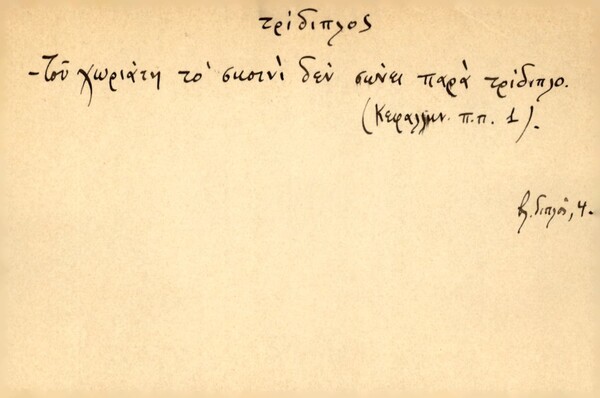 τρίδιπλος
- Τοῦ χωριάτη τὸ σκοινὶ δὲν σώνει παρὰ τρίδιπλο.
(Κεφαλλην. π.π. 1).
βλ. διπλὸς, 4.